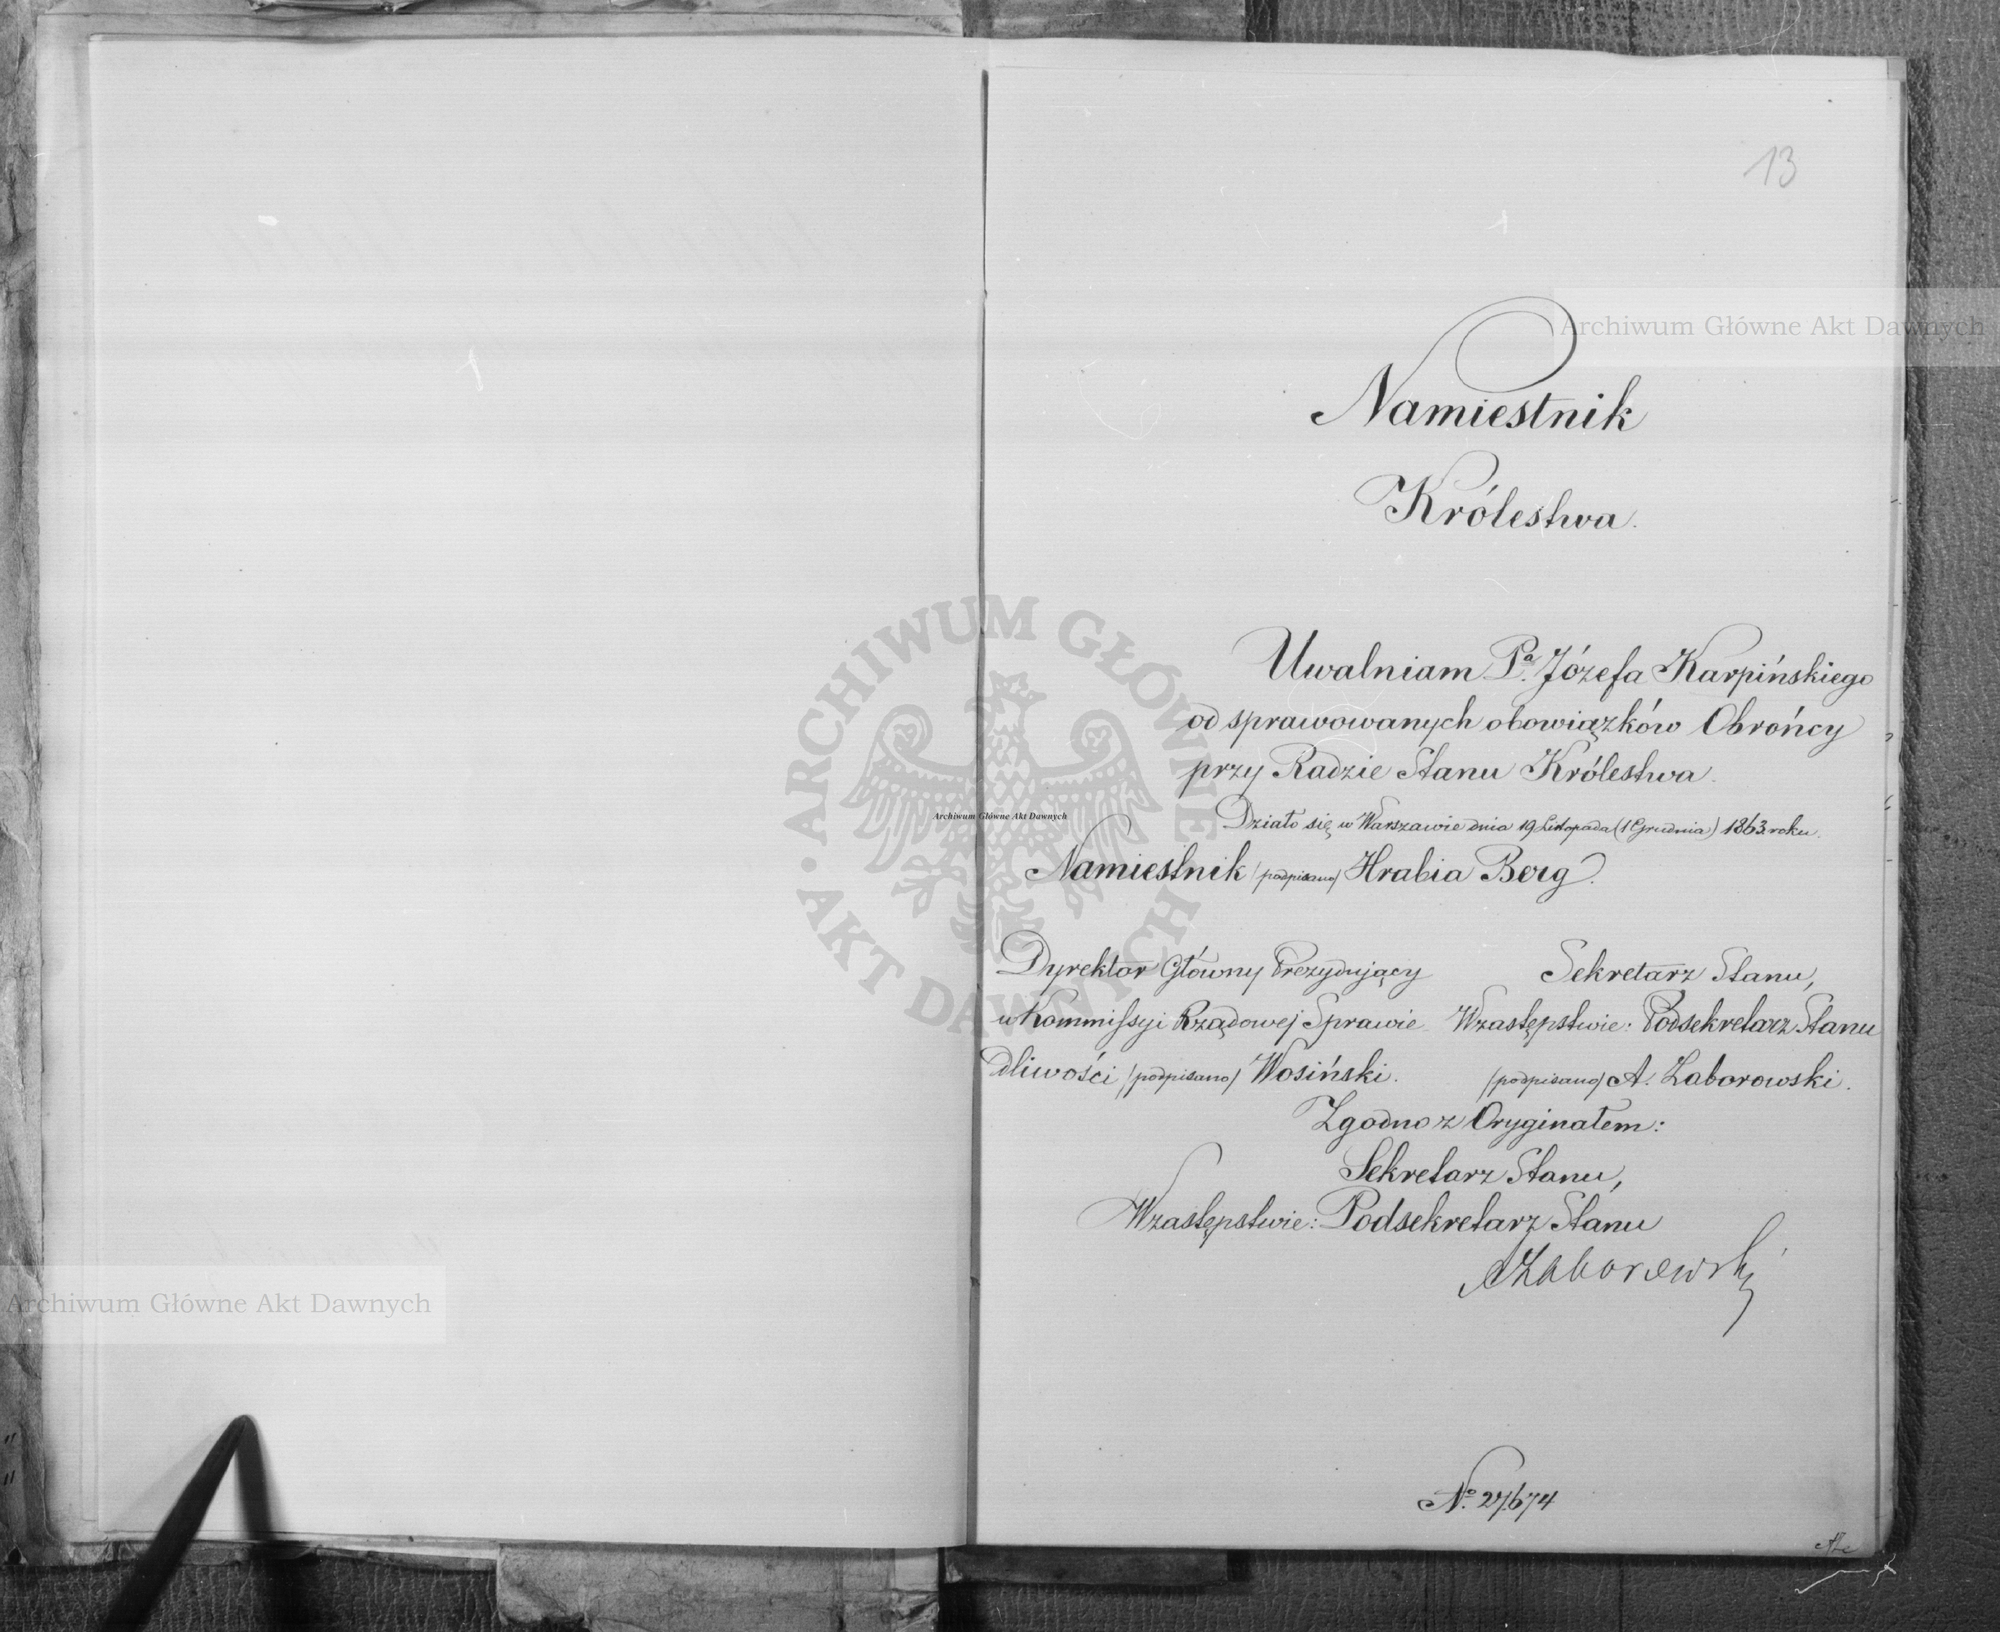 13
Archiwum Główne Akt Dawnych
Namiestnik
Królestwa.
Uwalniam Pa. Józefa Karpińskiego
od sprawowanych obowiązków Obrońcy
przy Radzie Stanu Królestwa.
Działo się w Warszawie dnia 19 Listopada (1 Grudnia) 1863 roku.
ARCHIWUM GŁÓWNE AKT DAWNYCH
Archiwum Główne Akt Dawnych
Namiestnik /podpisano/ Hrabia Berg.
Dyrektor Główny Prezydujący
w Kommissyi Rządowej Sprawie
dliwości /podpisano/ Wosiński.
Sekretarz Stanu,
W zastępstwie: Podsekretarz Stanu
/podpisano/ A. Zaborowski.
Zgodno z Oryginałem:
Sekretarz Stanu,
W zastępstwie: Podsekretarz Stanu
AZaborowski
Archiwum Główne Akt Dawnych
No. 27,674